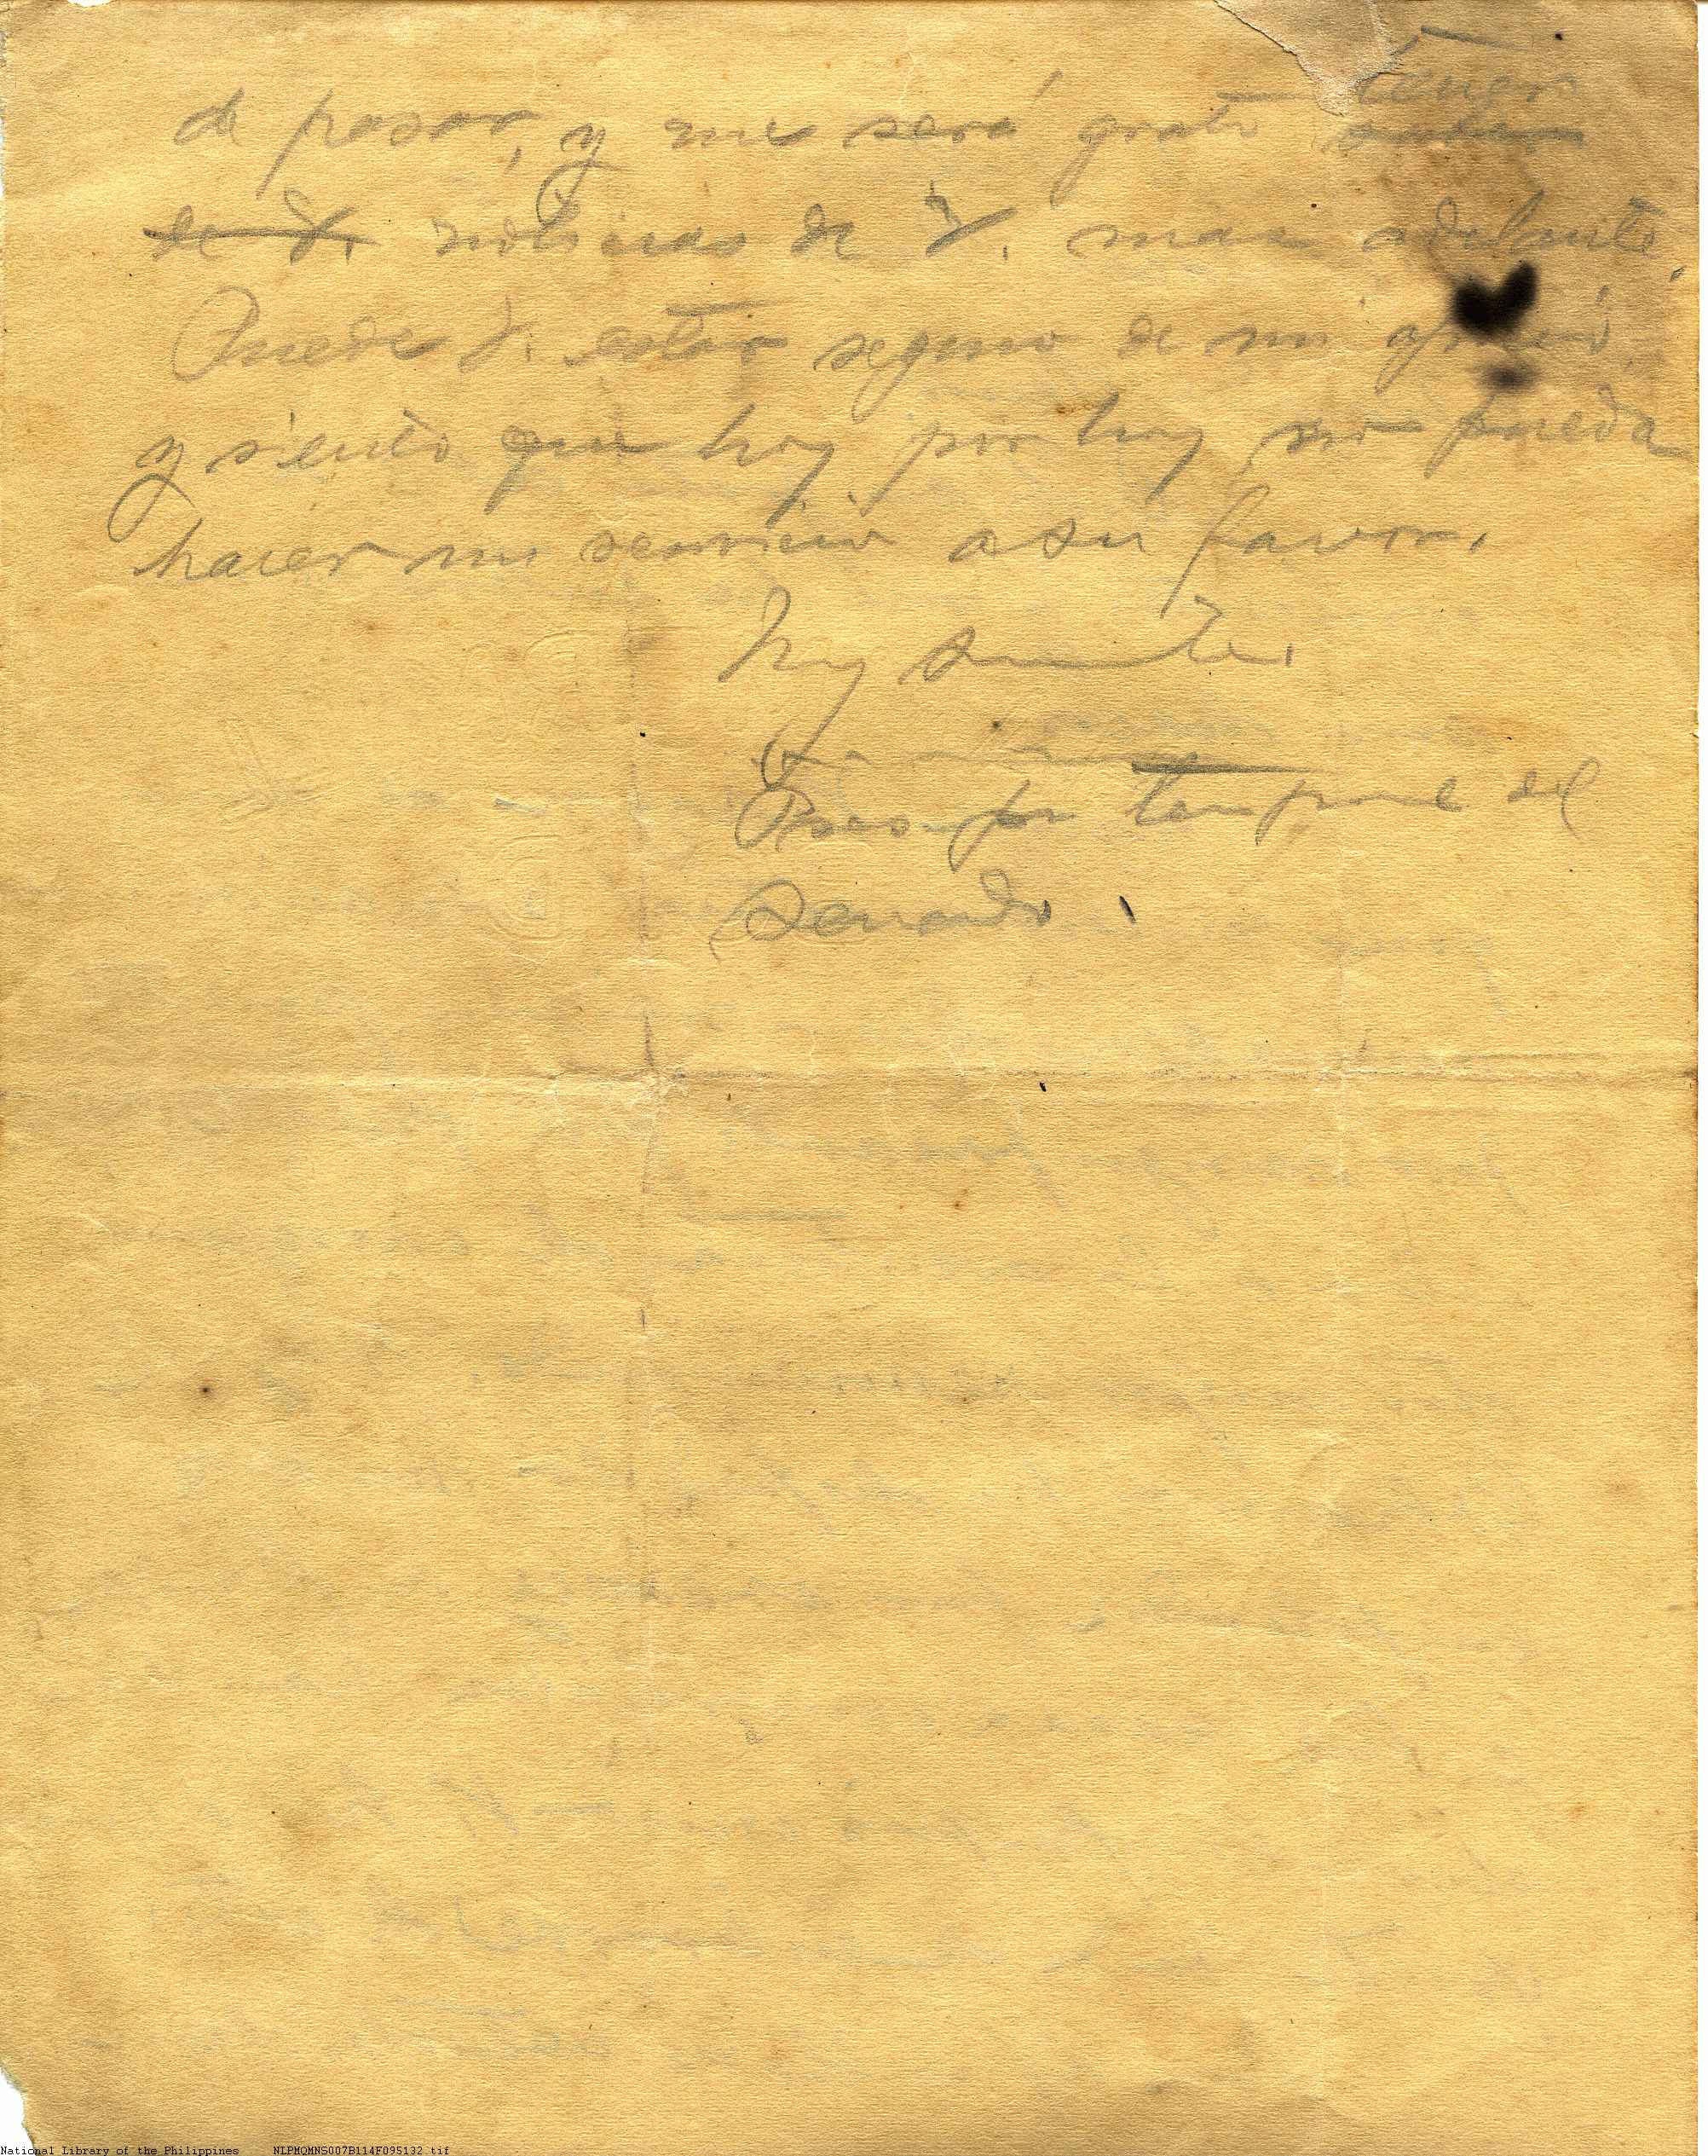 tener
de pasar, y me será grato saber
de V. noticias de V. mas adelante.
Puede V. estar seguro de mi
y siento que hoy por hoy no pueda
hacer mi servicio a su favor.
Muy
temporal del
Senado.
National Library of the Philippines NLPMQMNS007B114F095132.tif